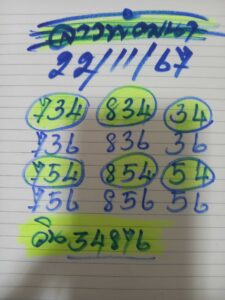 ลาวพัฒนา
22/11/67
734 834 34
736 836 36
754 854 54
756 856 56
วิน 34876